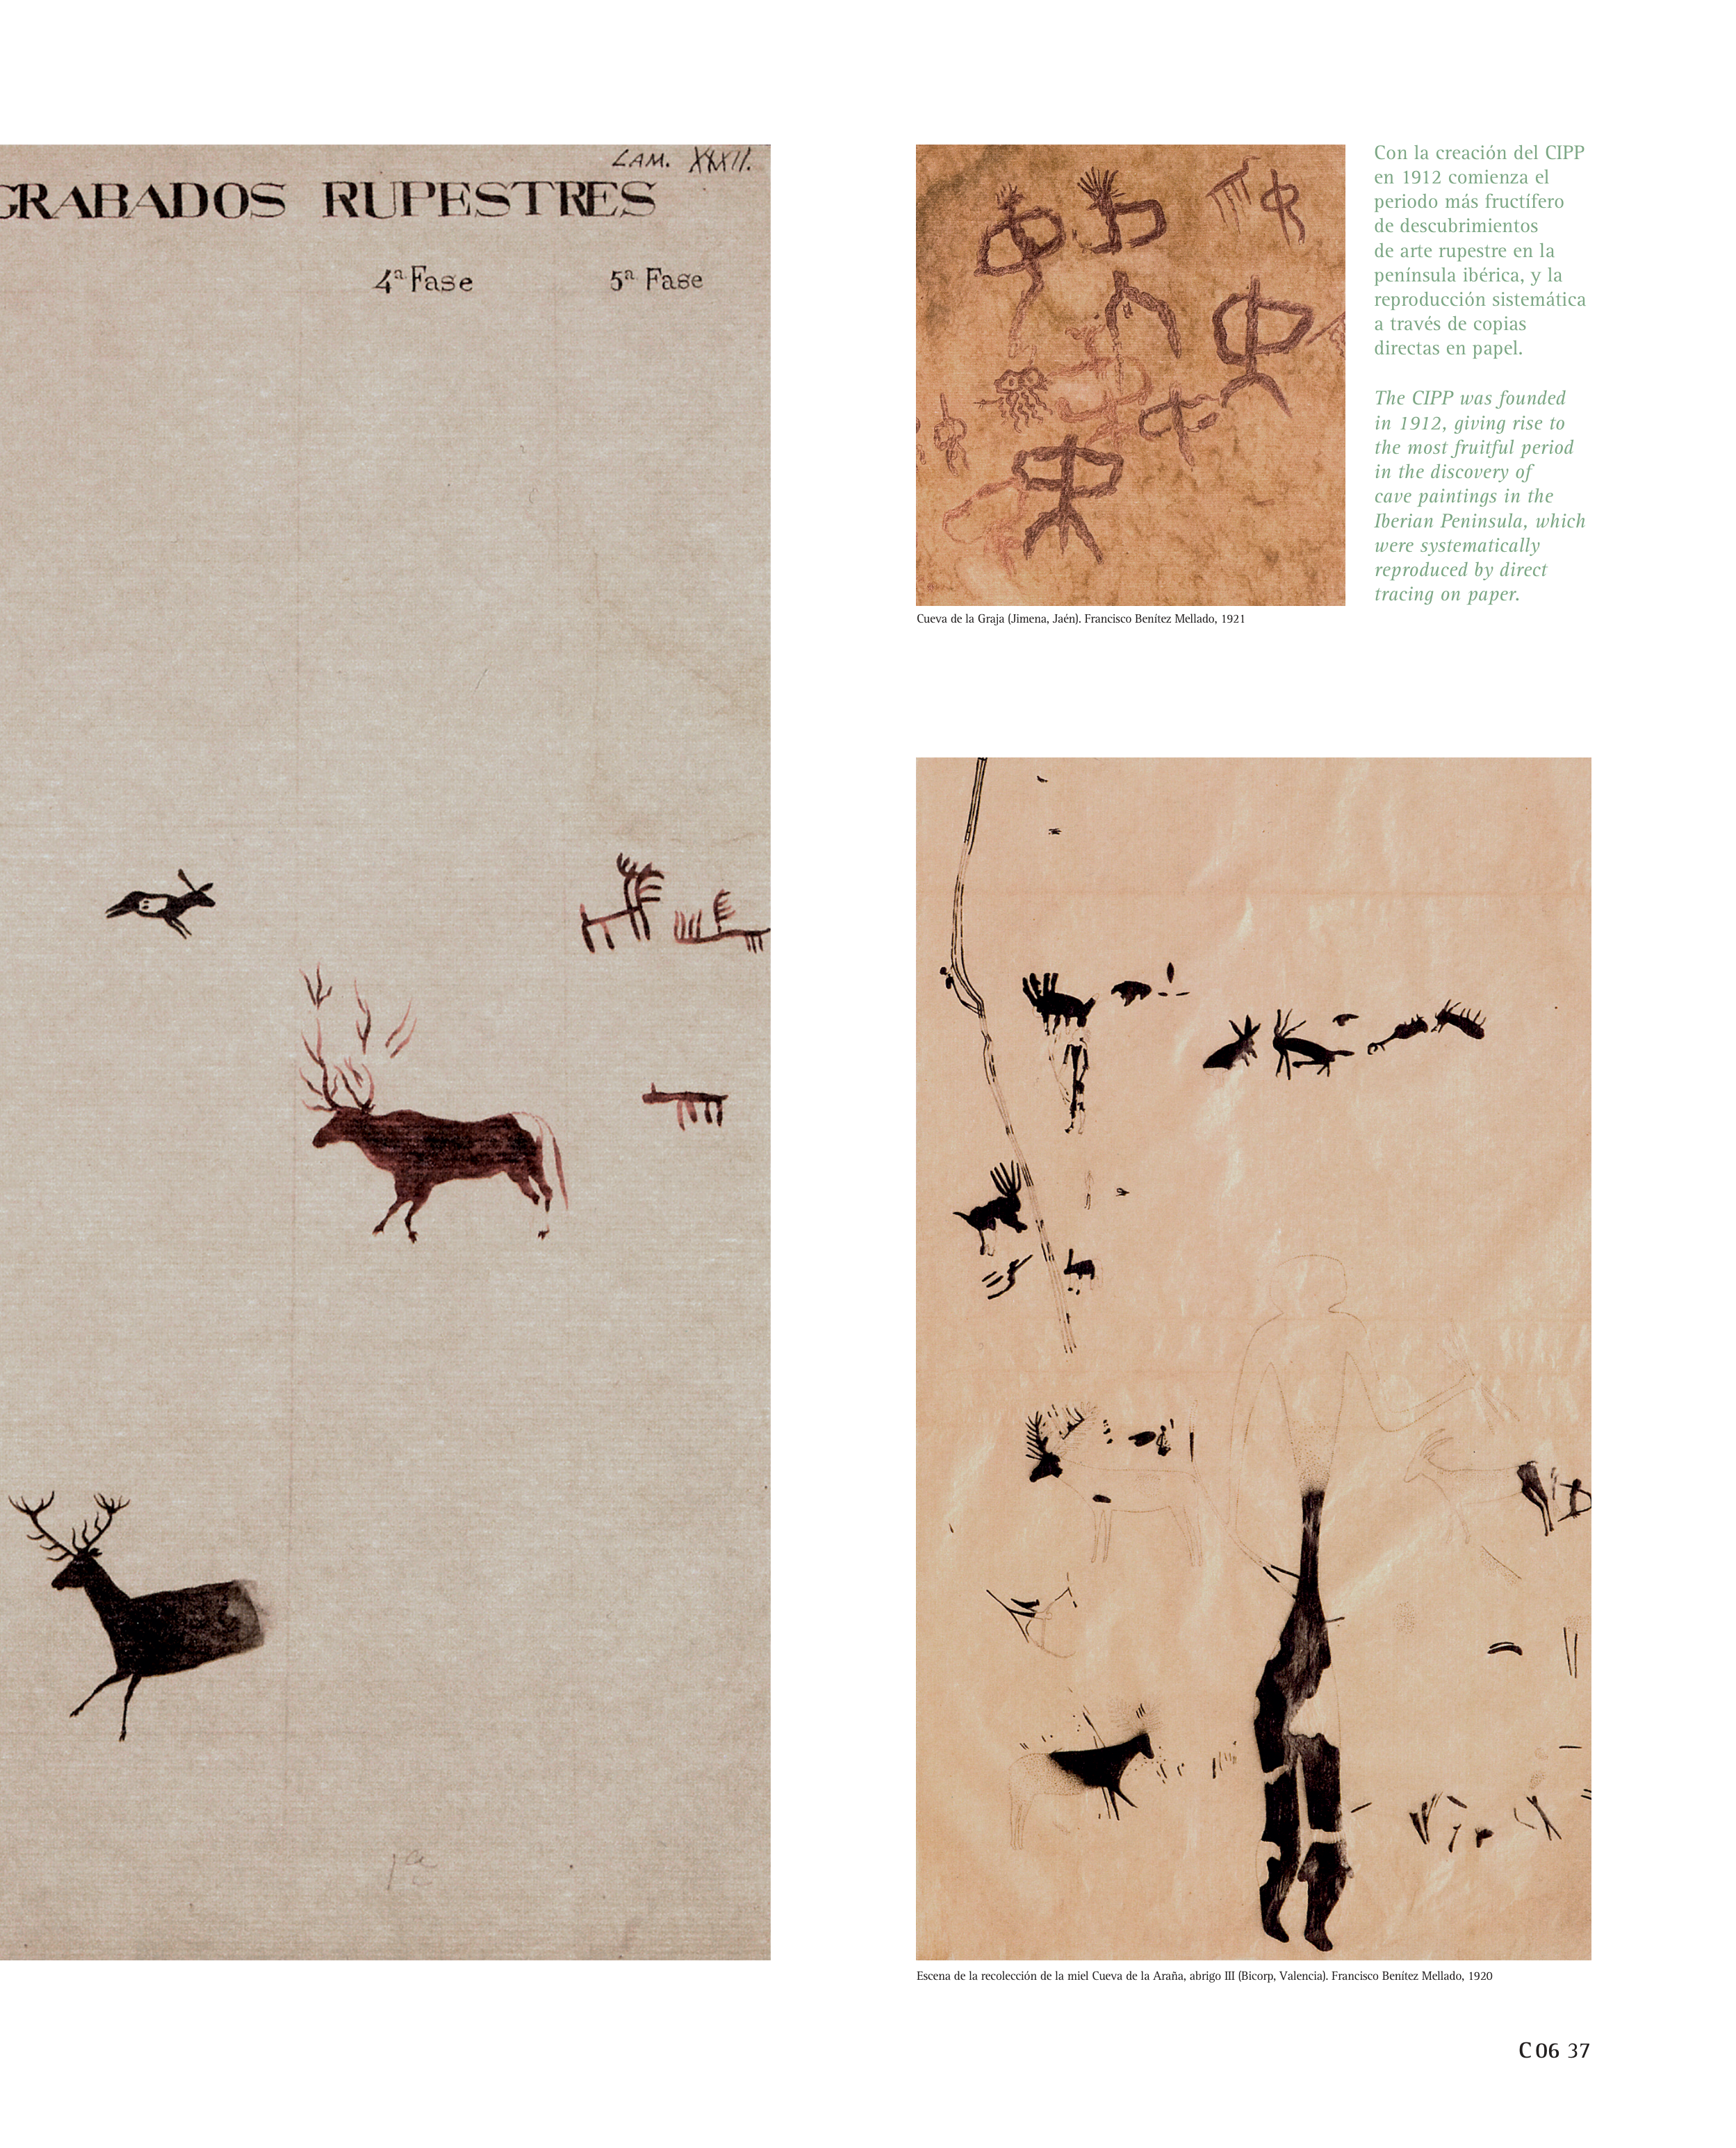 LAM. XXXII.
GRABADOS RUPESTRES
4ª Fase
5ª Fase
1ª
Con la creación del CIPP
en 1912 comienza el
periodo más fructífero
de descubrimientos
de arte rupestre en la
península ibérica, y la
reproducción sistemática
a través de copias
directas en papel.
The CIPP was founded
in 1912, giving rise to
the most fruitful period
in the discovery of
cave paintings in the
Iberian Peninsula, which
were systematically
reproduced by direct
tracing on paper.
Cueva de la Graja (Jimena, Jaén). Francisco Benítez Mellado, 1921
Escena de la recolección de la miel Cueva de la Araña, abrigo III (Bicorp, Valencia). Francisco Benítez Mellado, 1920
C 06 37